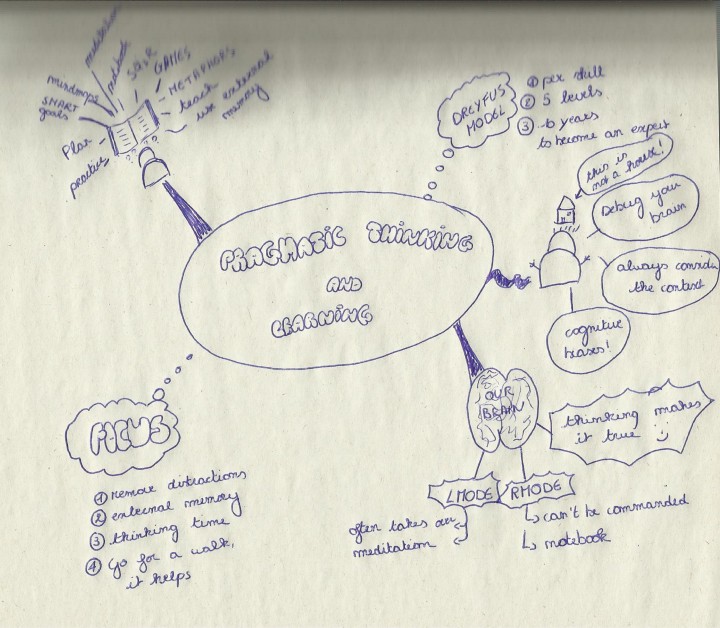 PRAGMATIC THINKING
AND
LEARNING
meditation
notebook
SQ3R
GAMES
METAPHORS
teach
use external
memory
mindmaps
SMART
goals
Plan
practice
DREYFUS
MODEL
① per skill
② 5 levels
③ 10 years
to become an expert
this is
not a house!
Debug your
brain
always consider
the context
cognitive
biases!
OUR
BRAIN
thinking makes
it true
LMODE
often takes over
meditation
RMODE
can't be commanded
notebook
FOCUS
① remove distractions
② external memory
③ thinking time
④ Go for a walk,
it helps